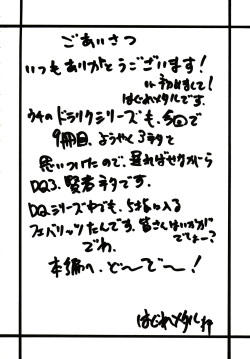 ごあいさつ
いつもありがとうございます!
初めまして!
はぐれメタルです。
ウチのドラクリクシリーズも、今回で
9冊目、ようやく3ヲタと
思いつけたので、遅ればせながら
DQ3.賢者ヲタです。
DQシリーズ中でも、5指に入る
フェバリッツたんです。皆さんはいかがでしょー?
でわ、
本編へ、ど〜で〜!
はぐれメタル拝